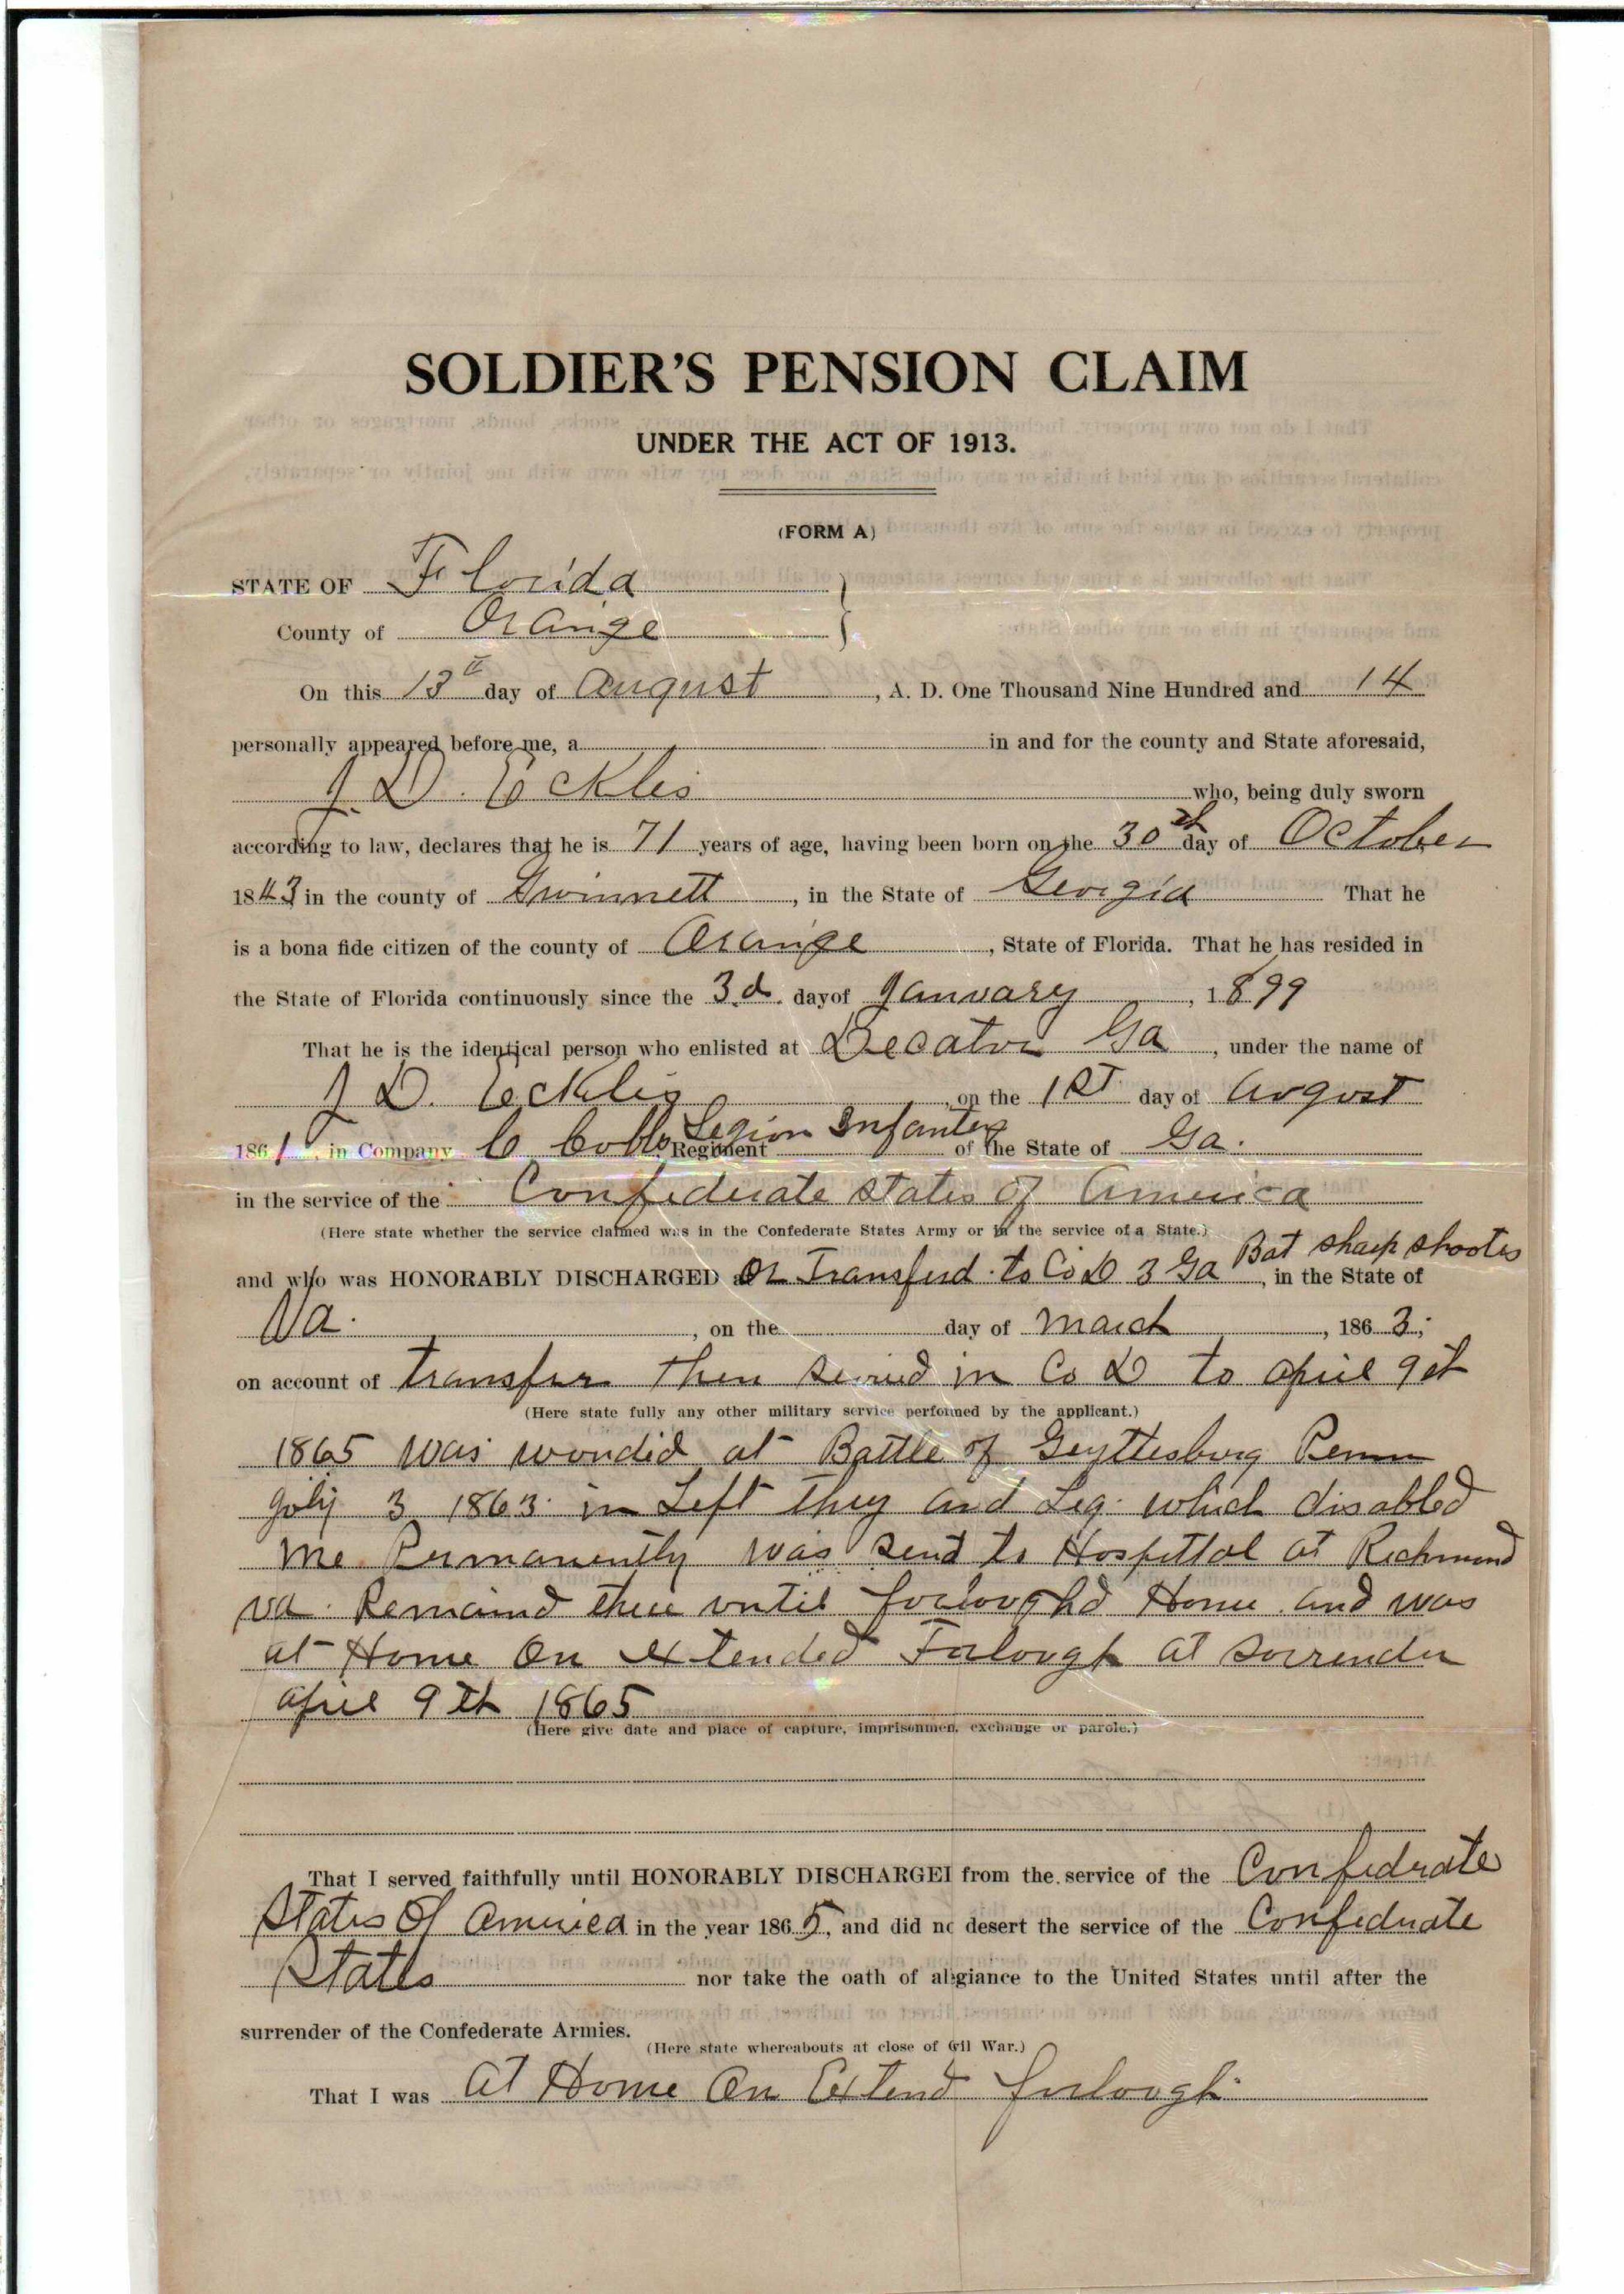 SOLDIER'S PENSION CLAIM
UNDER THE ACT OF 1913.
(FORM A)
STATE OF Florida
County of Orange
On this 13th day of August, A. D. One Thousand Nine Hundred and 14
personally appeared before me, a in and for the county and State aforesaid,
J. D. Eckles who, being duly sworn
according to law, declares that he is 71 years of age, having been born on the 30th day of October
1843 in the county of Gwinnett, in the State of Georgia That he
is a bona fide citizen of the county of Orange, State of Florida. That he has resided in
the State of Florida continuously since the 3d. day of January, 1899
That he is the identical person who enlisted at Decator Ga, under the name of
J D. Eckles, on the 1st day of Avgvst
1861, in Company C Cobbs Legion Infantry Regiment of the State of Ga.
in the service of the Confederate States of America
(Here state whether the service claimed was in the Confederate States Army or in the service of a State.)
and who was HONORABLY DISCHARGED at or Transferd to Co D 3 Ga Bat sharp shooters, in the State of
Va., on the day of March, 1863;
on account of transfer then served in Co D to April 9th
(Here state fully any other military service performed by the applicant.)
1865 was wonded at Battle of Geyttesburg Penn
July 3 1863 in Left They and Leg. which disabled
me Permanently was send to Hospittal at Richmond
va. Remaind there vntil forloughd Home. and was
at Home On extended Forlough at sorrender
April 9th 1865
(Here give date and place of capture, imprisonmen, exchange or parole.)
That I served faithfully until HONORABLY DISCHARGEI from the service of the Confederate
States Of America in the year 1865, and did no desert the service of the Confederate
States nor take the oath of alegiance to the United States until after the
surrender of the Confederate Armies.
(Here state whereabouts at close of Civil War.)
That I was At Home On Extend furlough.